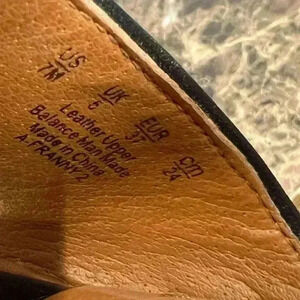 US UK EUR cm
7M 5 37 24
Leather Upper
Balance Man Made
Made in China
A-FRANNY2